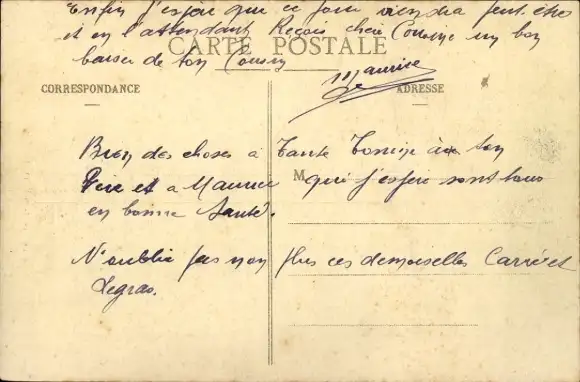 Enfin j'espère que ce jour viendra peut être
et en l'attendant Reçois chère Cousine un bon
CARTE POSTALE
baiser de ton Cousin
Maurice
CORRESPONDANCE
ADRESSE
Bien des choses à Tante à ton
Père et a Maurice M qui j'espère sont tous
en bonne Santé.
N'oublie pas non plus ces demoiselles Carré et
Legras.